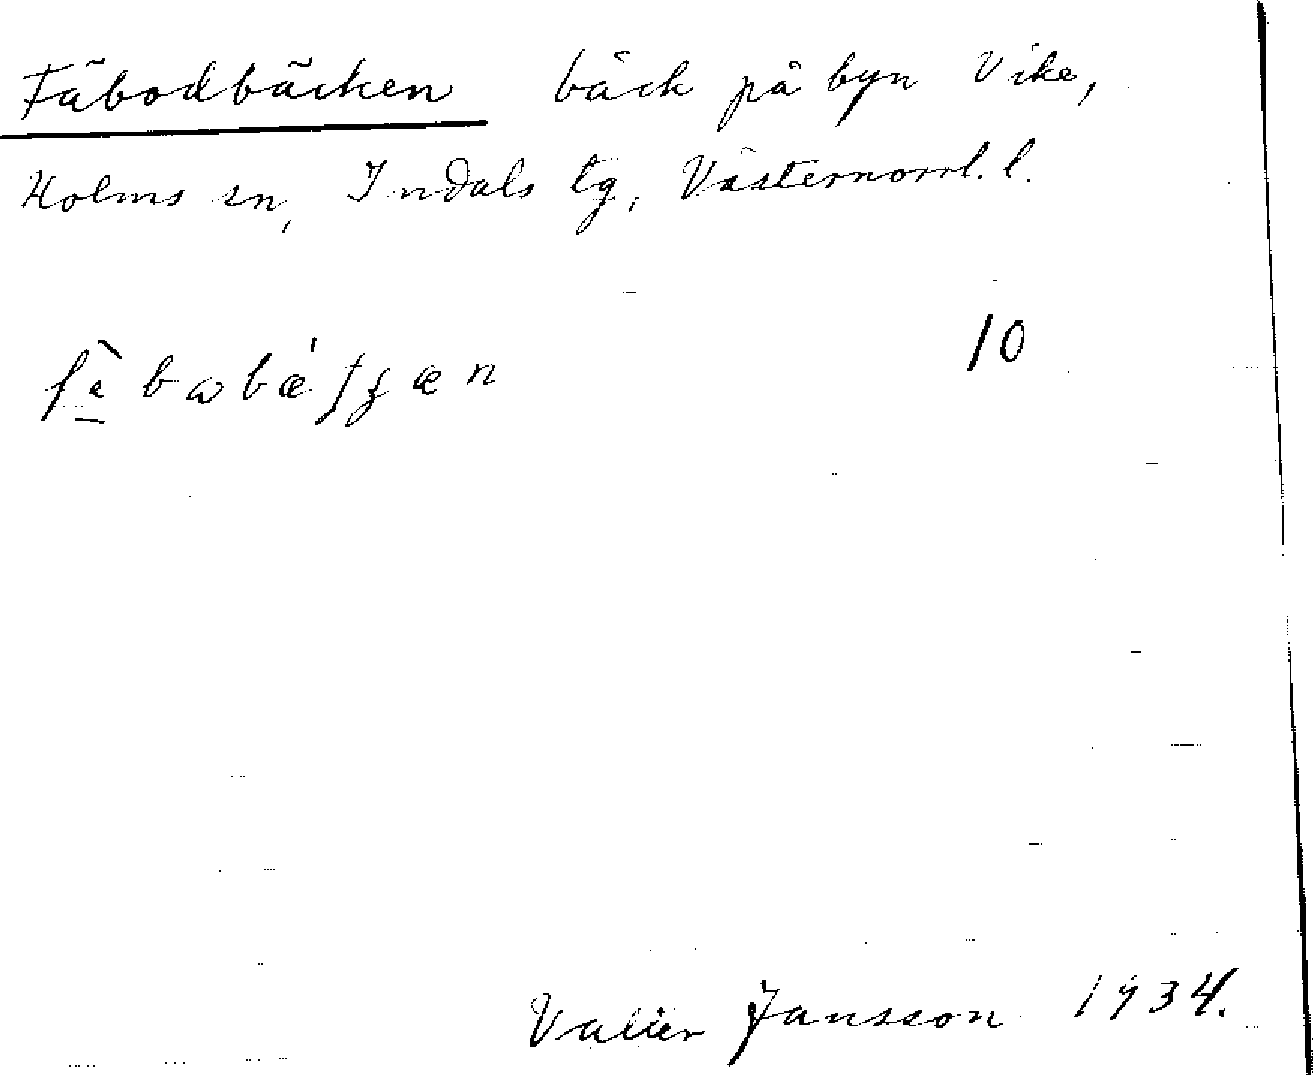 Fäbodbäcken bäck på byn Vike,
Holms sn, Indals tg, Västernorrl. l.
10
Valier Jansson 1934.